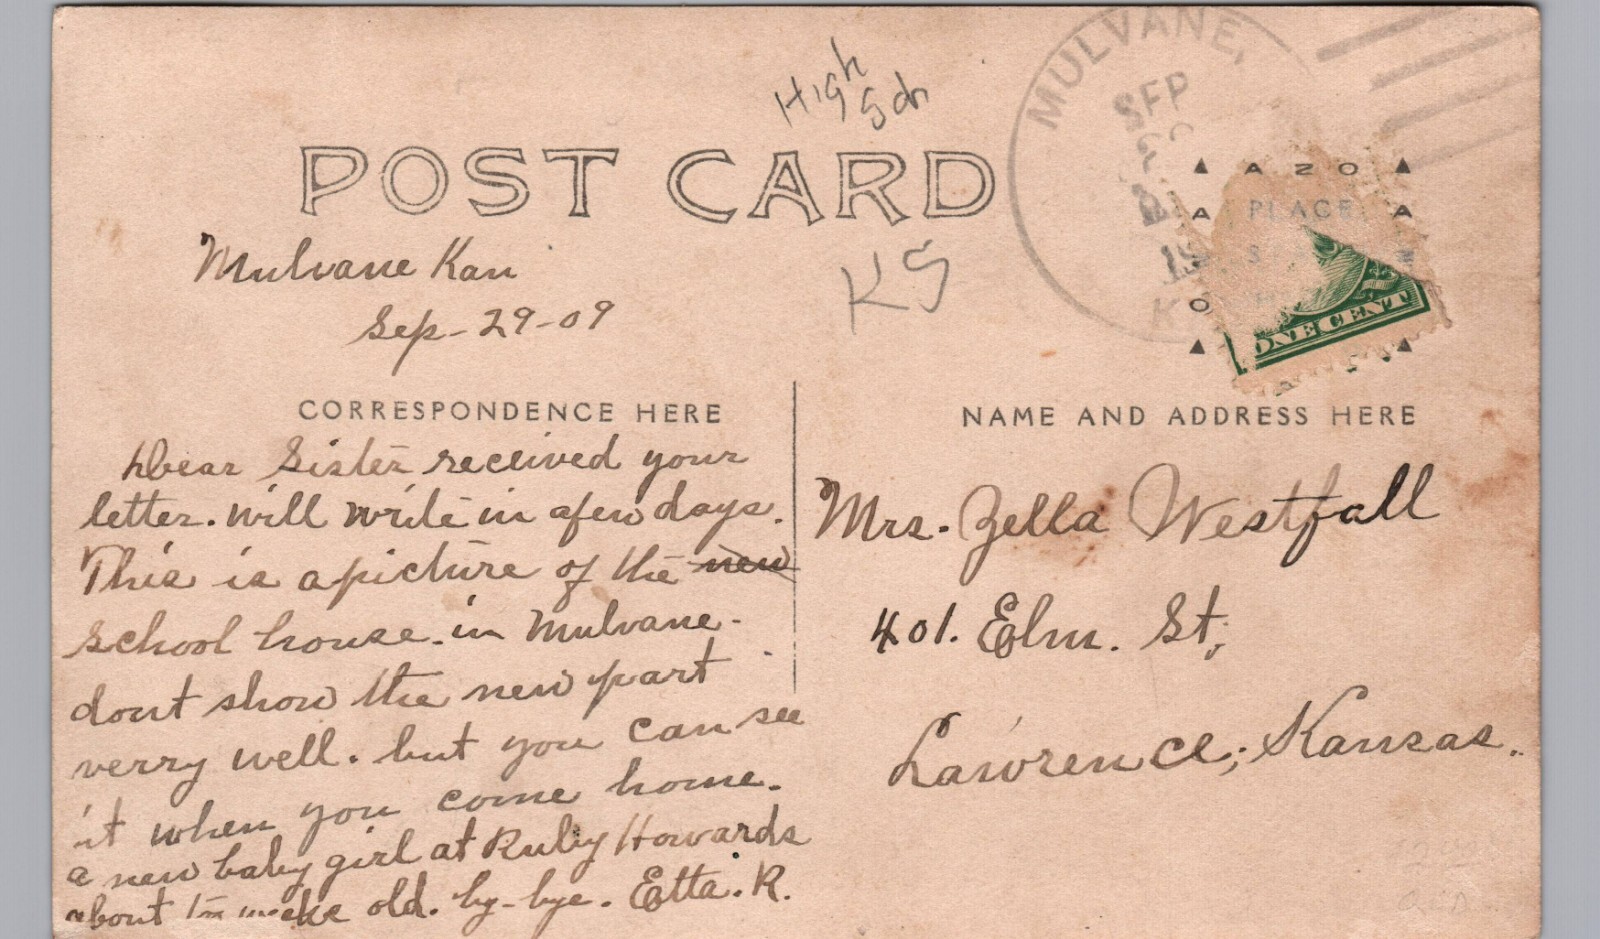 High
Sch
MULVANE,
SEP
19
K
POST CARD
AZO
PLACE
A A
O
ONE CENT
KS
Mulvane Kan
Sep-29-09
CORRESPONDENCE HERE
NAME AND ADDRESS HERE
Dear Sister received your
letter. will write in a few days.
This is a picture of the new
school house. in Mulvane.
dont show the new part
verry well. but you can see
it when you come home.
a new baby girl at Ruby Howards
about old. by-bye. Etta. R.
Mrs. Zella Westfall
401. Elm. St,
Lawrence, Kansas.